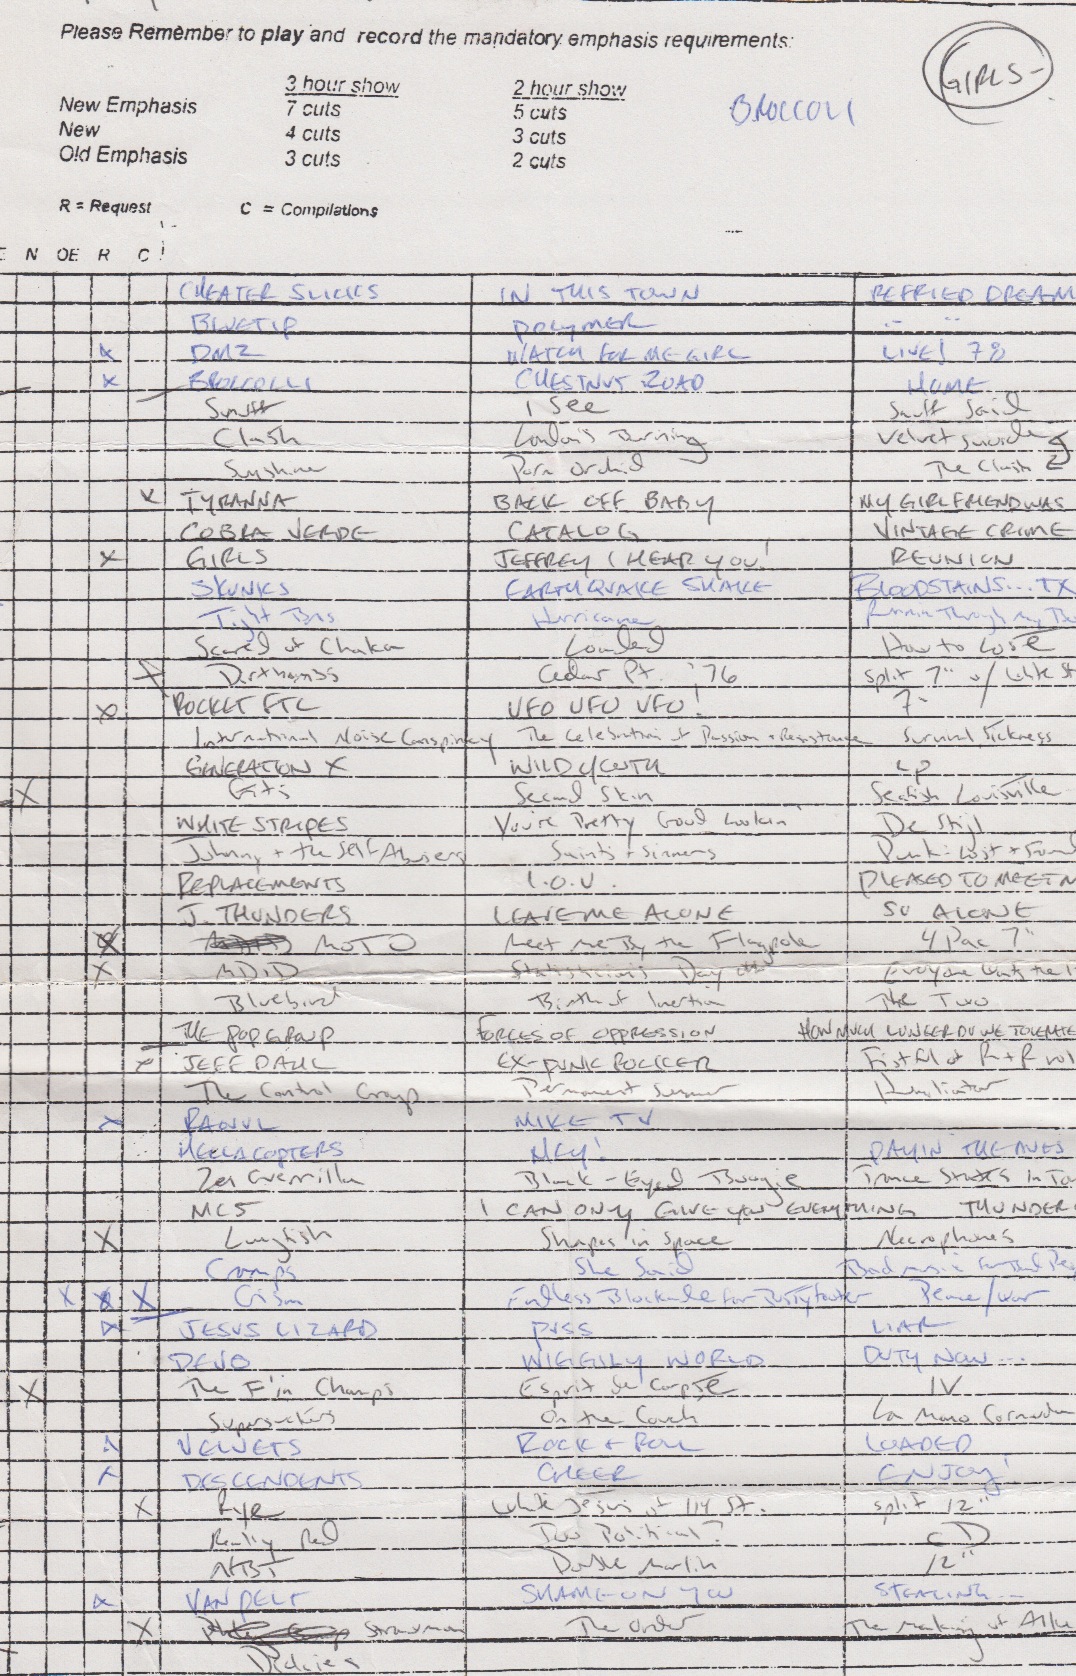 Please Remember to play and record the mandatory emphasis requirements:
GIRLS -
3 hour show 2 hour show
BROCCOLI
New Emphasis 7 cuts 5 cuts
New 4 cuts 3 cuts
Old Emphasis 3 cuts 2 cuts
R = Request C = Compilations
E N OE R C
CHEATER SLICKS IN THIS TOWN REFRIED DREAM
BLUETIP POLYMER " "
x DMZ WATCH FOR ME GIRL LIVE! 78
x BROCCOLLI CHESTNUT ROAD HOME
Snuff I See Snuff Said
Clash London's Burning The Clash
Sunshine Porn Orchid Velvet Suicide
x TYRANNA BACK OFF BABY MY GIRLFRIEND WAS
COBRA VERDE CATALOG VINTAGE CRIME
x GIRLS JEFFREY I HEAR YOU! REUNION
SKUNKS EARTHQUAKE SHAKE BLOODSTAINS... TX
Tight Bros Hurricane Runnin Through My
Scared of Chaka Loaded How to Lose
x Dirtbombs Cedar Pt. '76 split 7" w/ White St
x ROCKET FTC UFO UFO UFO! 7"
International Noise Conspiracy The Celebration of Passion + Resistance Survival Sickness
GENERATION X WILD YOUTH LP
X Gits Second Skin Seafish Louisville
WHITE STRIPES You're Pretty Good Lookin De Stijl
Johnny + the Self Abusers Saints + Sinners Punk - Lost + Found
REPLACEMENTS I.O.U. PLEASED TO MEET M
J. THUNDERS LEAVE ME ALONE SO ALONE
x MOTO Meet Me By the Flagpole 4 Pac 7"
X MDID Statistician's Day Everyone Wants the
Bluebird Birth of Inertia The Two
THE POP GROUP FORCES OF OPPRESSION HOW MUCH LONGER DO WE TOLERATE
JEFF DAHL EX-PUNK ROCKER Fistful of R+R vol
The Control Group Permanent Humiliator
x RAOUL MIKE TV
HELLACOPTERS HEY! PAYIN THE DUES
Zen Guerrilla Black-Eyed Boogie Trance States in To
MC5 I CAN ONLY GIVE YOU EVERYTHING THUNDER
X Lungfish Shapes in Space Necrophones
Cramps She Said Bad Music for Bad Peo
X X X Gism Endless Blockade for Pussyfooter Peace/War
x JESUS LIZARD PUSS LIAR
DEVO WIGGILY WORLD DUTY NOW...
X The F'in Champs Esprit de Corpse IV
Supersuckers On the Couch La Mano Cornuda
VELVETS ROCK + ROLL LOADED
DESCENDENTS CHEER ENJOY!
X Rye White Jesus of 114 St. split 12"
Really Red Too Political? CD
Double Martin 12"
x VAN PELT SHAME ON YOU STEALING...
X Strawman The Order The Making of
Dickies